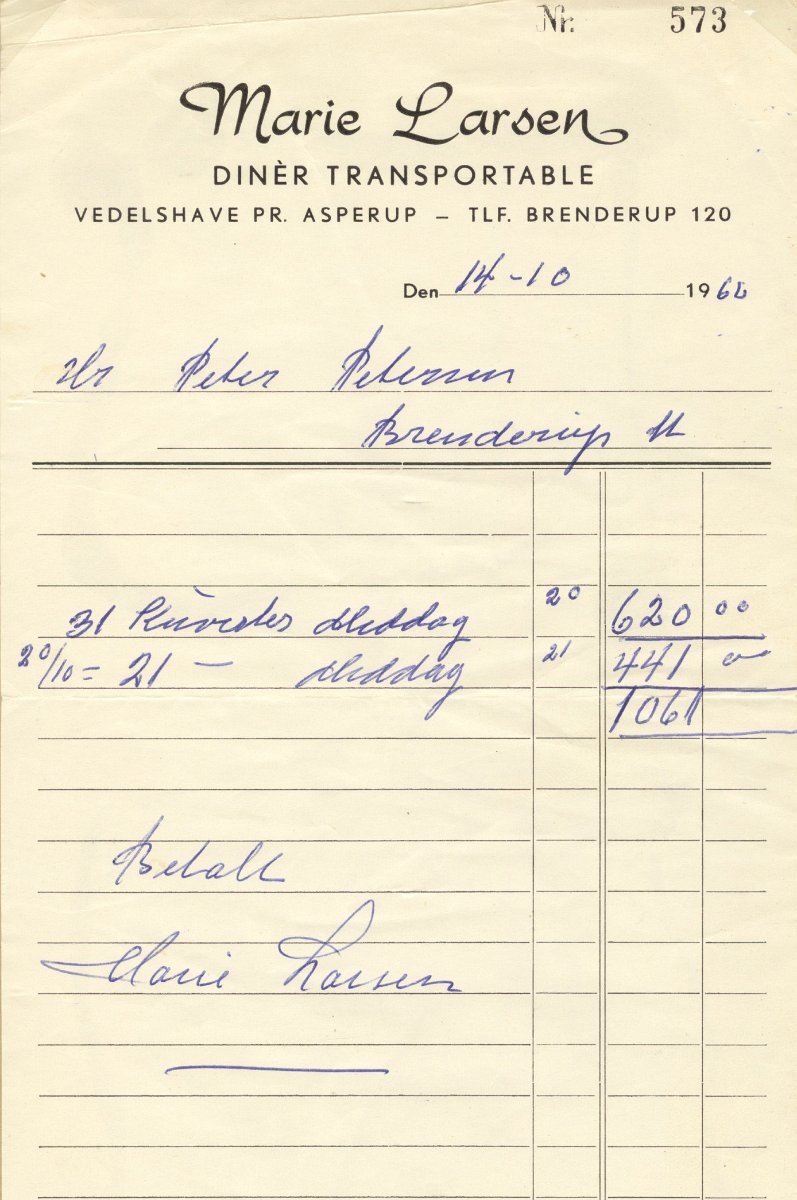 Nr. 573
Marie Larsen
DINÈR TRANSPORTABLE
VEDELSHAVE PR. ASPERUP – TLF. BRENDERUP 120
Den 14-10 1966
Hr Peter Petersen
Brenderup M
31 Kuverter Middag 20 620 00
20/10 = 21 — Middag 21 441 00
1061
Betalt
Marie Larsen